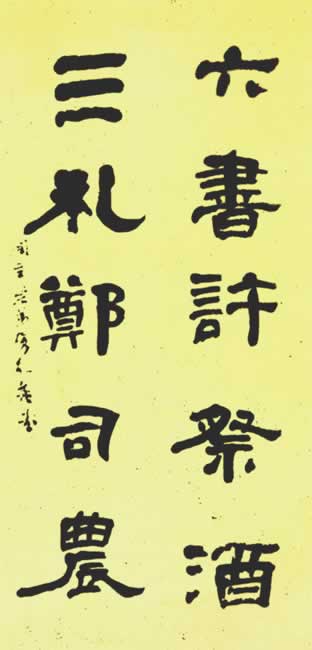 六書許祭酒
三礼鄭司農